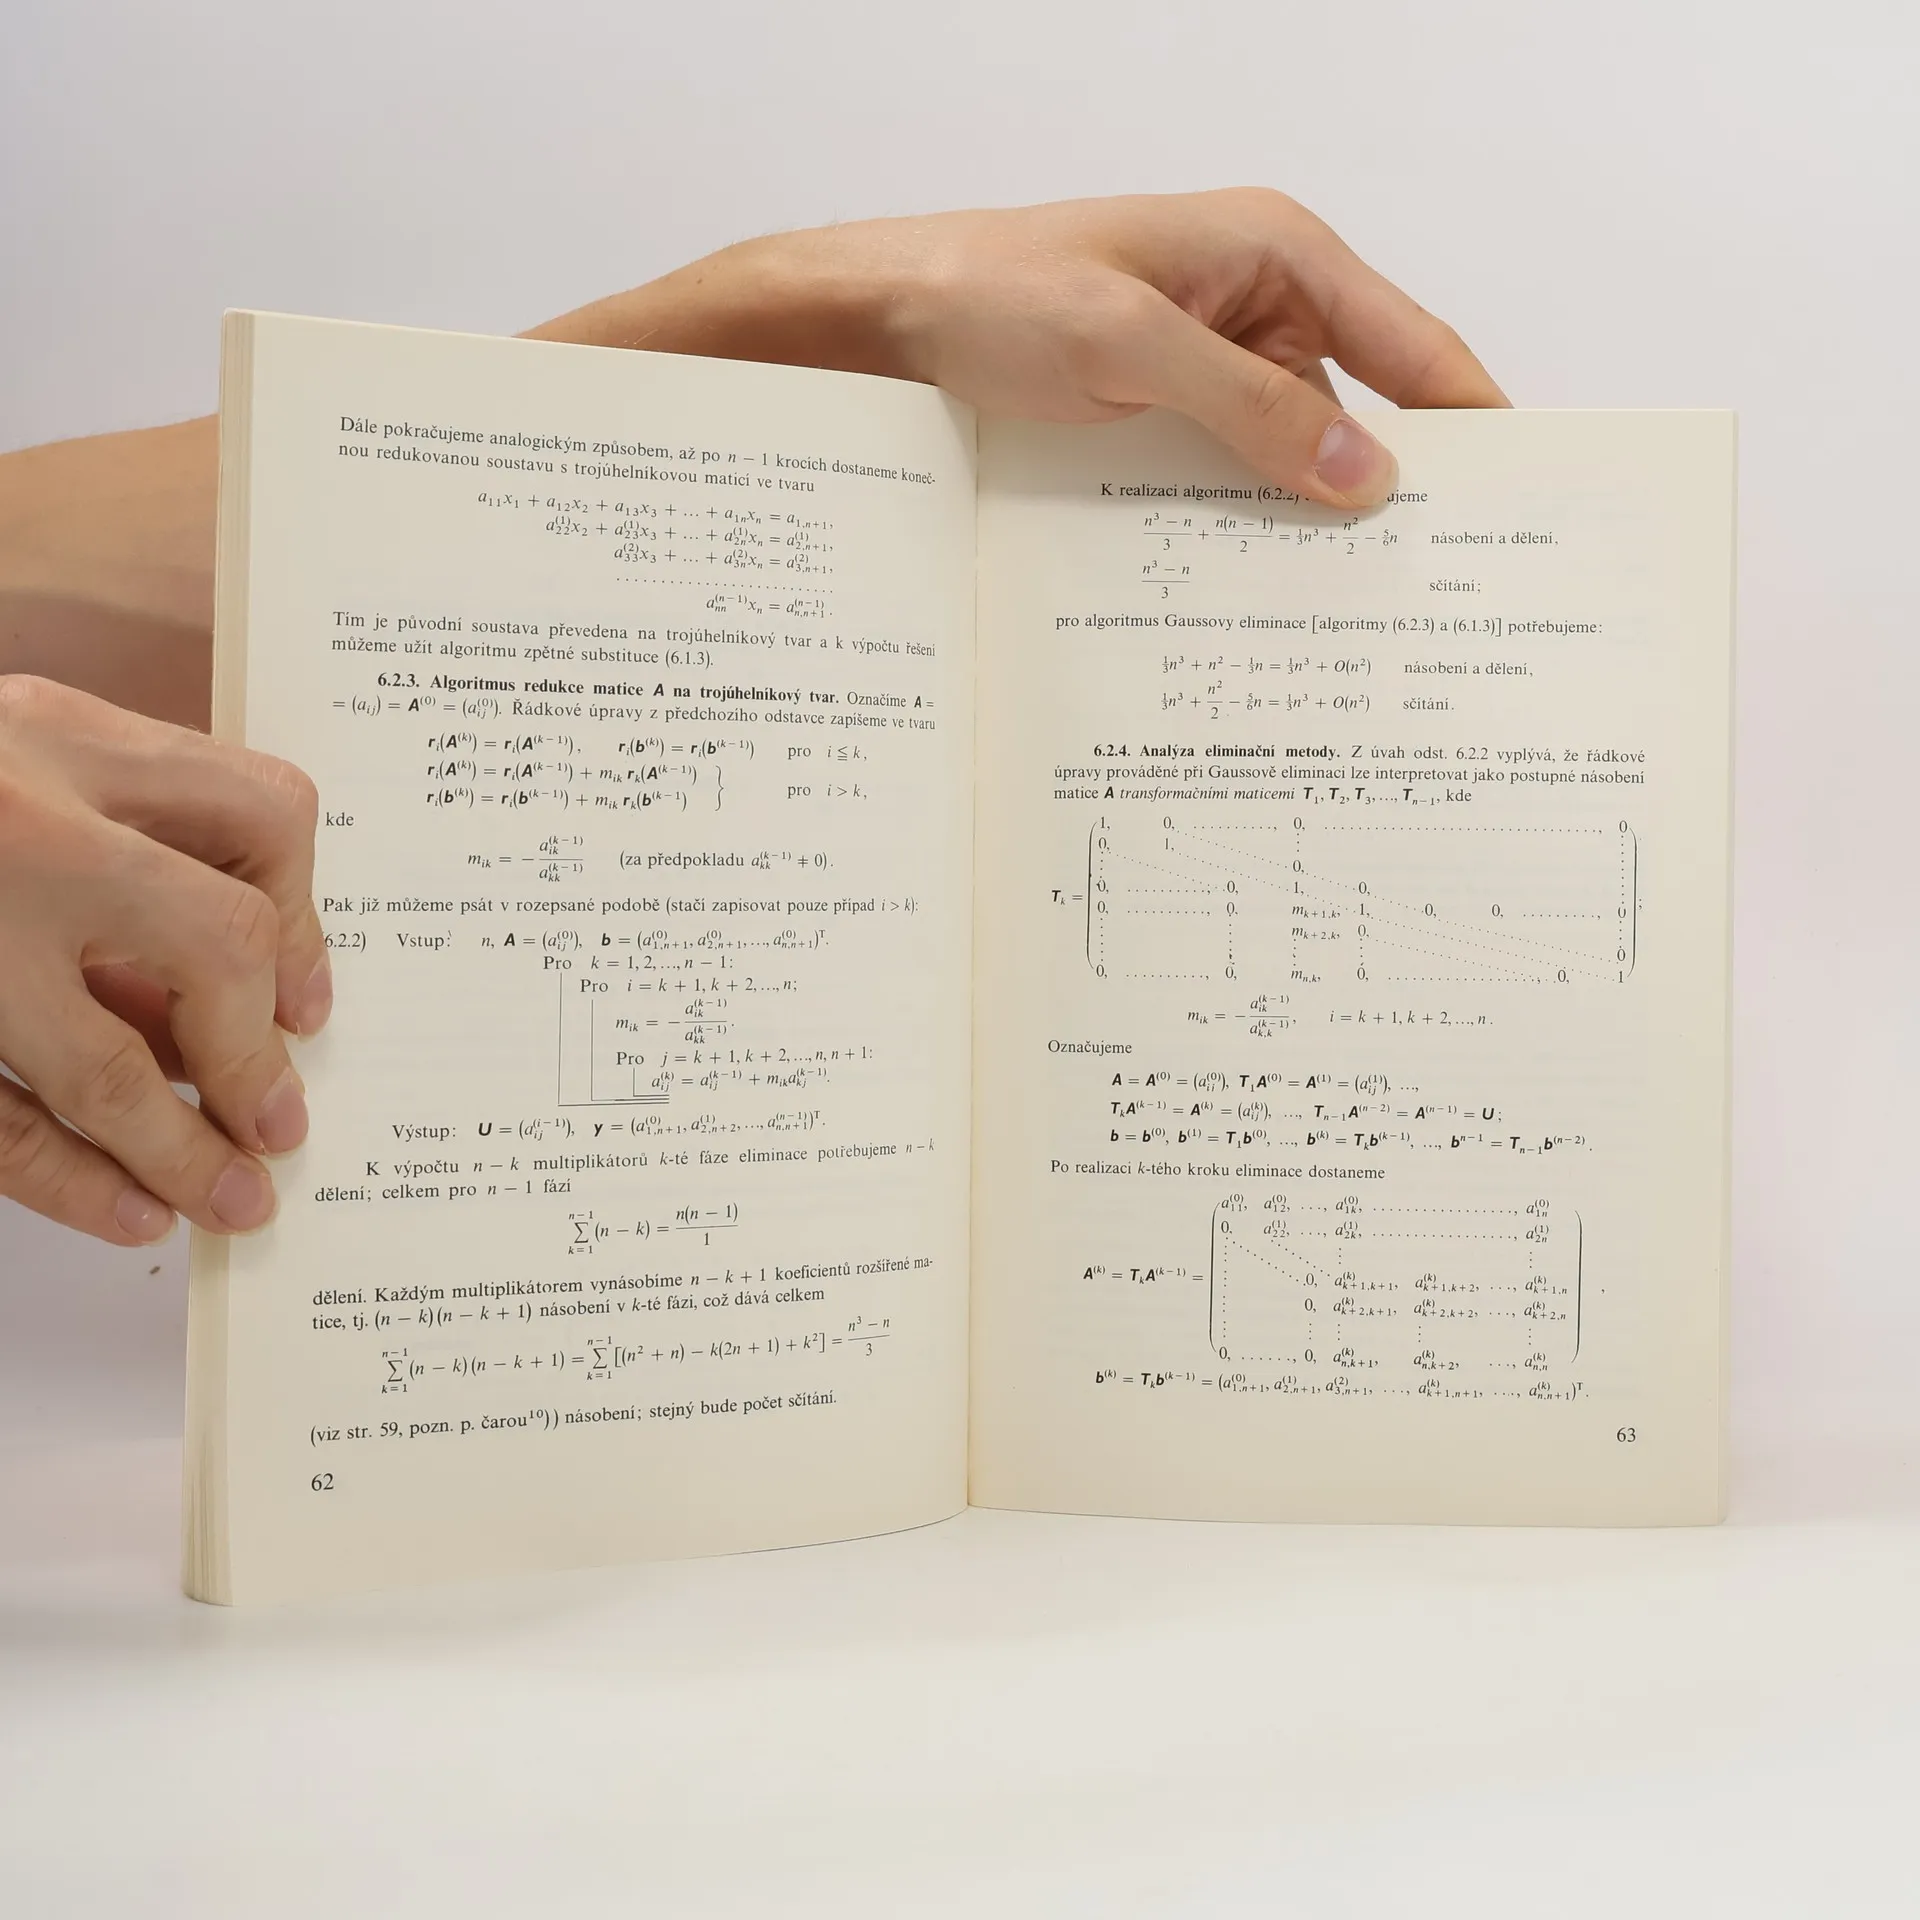 Dále pokračujeme analogickým způsobem, až po n − 1 krocích dostaneme koneč-
nou redukovanou soustavu s trojúhelníkovou maticí ve tvaru
a₁₁x₁ + a₁₂x₂ + a₁₃x₃ + ... + a₁ₙxₙ = a₁,ₙ₊₁,
a₂₂^(1)x₂ + a₂₃^(1)x₃ + ... + a₂ₙ^(1)xₙ = a₂,ₙ₊₁^(1),
a₃₃^(2)x₃ + ... + a₃ₙ^(2)xₙ = a₃,ₙ₊₁^(2),
. . . . . . . . . . . . . . . . . . . . . . . .
aₙₙ^(n−1)xₙ = aₙ,ₙ₊₁^(n−1).
Tím je původní soustava převedena na trojúhelníkový tvar a k výpočtu řešení
můžeme užít algoritmu zpětné substituce (6.1.3).
6.2.3. Algoritmus redukce matice A na trojúhelníkový tvar. Označíme A =
= (a_ij) = A^(0) = (a_ij^(0)). Řádkové úpravy z předchozího odstavce zapíšeme ve tvaru
r_i(A^(k)) = r_i(A^(k−1)), r_i(b^(k)) = r_i(b^(k−1)) pro i ≦ k,
r_i(A^(k)) = r_i(A^(k−1)) + m_ik r_k(A^(k−1))
r_i(b^(k)) = r_i(b^(k−1)) + m_ik r_k(b^(k−1)) } pro i > k,
kde
m_ik = − a_ik^(k−1) / a_kk^(k−1) (za předpokladu a_kk^(k−1) ≠ 0).
Pak již můžeme psát v rozepsané podobě (stačí zapisovat pouze případ i > k):
6.2.2) Vstup: n, A = (a_ij^(0)), b = (a_1,n+1^(0), a_2,n+1^(0), ..., a_n,n+1^(0))^T.
Pro k = 1, 2, ..., n − 1:
Pro i = k + 1, k + 2, ..., n;
m_ik = − a_ik^(k−1) / a_kk^(k−1).
Pro j = k + 1, k + 2, ..., n, n + 1:
a_ij^(k) = a_ij^(k−1) + m_ik a_kj^(k−1).
Výstup: U = (a_ij^(i−1)), y = (a_1,n+1^(0), a_2,n+2^(1), ..., a_n,n+1^(n−1))^T.
K výpočtu n − k multiplikátorů k-té fáze eliminace potřebujeme n − k
dělení; celkem pro n − 1 fází
∑_{k=1}^{n−1} (n − k) = n(n − 1) / 1
dělení. Každým multiplikátorem vynásobíme n − k + 1 koeficientů rozšířené ma-
tice, tj. (n − k)(n − k + 1) násobení v k-té fázi, což dává celkem
∑_{k=1}^{n−1} (n − k)(n − k + 1) = ∑_{k=1}^{n−1} [(n² + n) − k(2n + 1) + k²] = (n³ − n) / 3
(viz str. 59, pozn. p. čarou¹⁰)) násobení; stejný bude počet sčítání.
62
K realizaci algoritmu (6.2.2) ujeme
(n³ − n) / 3 + n(n − 1) / 2 = ⅓n³ + n²/2 − ⅚n násobení a dělení,
(n³ − n) / 3 sčítání;
pro algoritmus Gaussovy eliminace [algoritmy (6.2.3) a (6.1.3)] potřebujeme:
⅓n³ + n² − ⅓n = ⅓n³ + O(n²) násobení a dělení,
⅓n³ + n²/2 − ⅚n = ⅓n³ + O(n²) sčítání.
6.2.4. Analýza eliminační metody. Z úvah odst. 6.2.2 vyplývá, že řádkové
úpravy prováděné při Gaussově eliminaci lze interpretovat jako postupné násobení
matice A transformačními maticemi T₁, T₂, T₃, ..., Tₙ₋₁, kde
1, 0, .........., 0, .............................., 0
0, 1,
0,
T_k = 0, .........., 0, 1, 0,
0, .........., 0. m_k+1,k, 1, 0, 0, .........., 0 ;
m_k+2,k, 0,
0
0, .........., 0, m_n,k, 0, .................., 0, 1
m_ik = − a_ik^(k−1) / a_k,k^(k−1), i = k + 1, k + 2, ..., n.
Označujeme
A = A^(0) = (a_ij^(0)), T₁A^(0) = A^(1) = (a_ij^(1)), ...,
T_kA^(k−1) = A^(k) = (a_ij^(k)), ..., T_n−1A^(n−2) = A^(n−1) = U;
b = b^(0), b^(1) = T₁b^(0), ..., b^(k) = T_kb^(k−1), ..., b^n−1 = T_n−1b^(n−2).
Po realizaci k-tého kroku eliminace dostaneme
a_11^(0), a_12^(0), ..., a_1k^(0), .................., a_1n^(0)
0, a_22^(1), ..., a_2k^(1), .................., a_2n^(1)
A^(k) = T_kA^(k−1) = 0, a_k+1,k+1^(k), a_k+1,k+2^(k), ..., a_k+1,n^(k) ,
0, a_k+2,k+1^(k), a_k+2,k+2^(k), ..., a_k+2,n^(k)
0, ......, 0, a_n,k+1^(k), a_n,k+2^(k), ..., a_n,n^(k)
b^(k) = T_kb^(k−1) = (a_1,n+1^(0), a_2,n+1^(1), a_3,n+1^(2), ..., a_k+1,n+1^(k), ..., a_n,n+1^(k))^T.
63